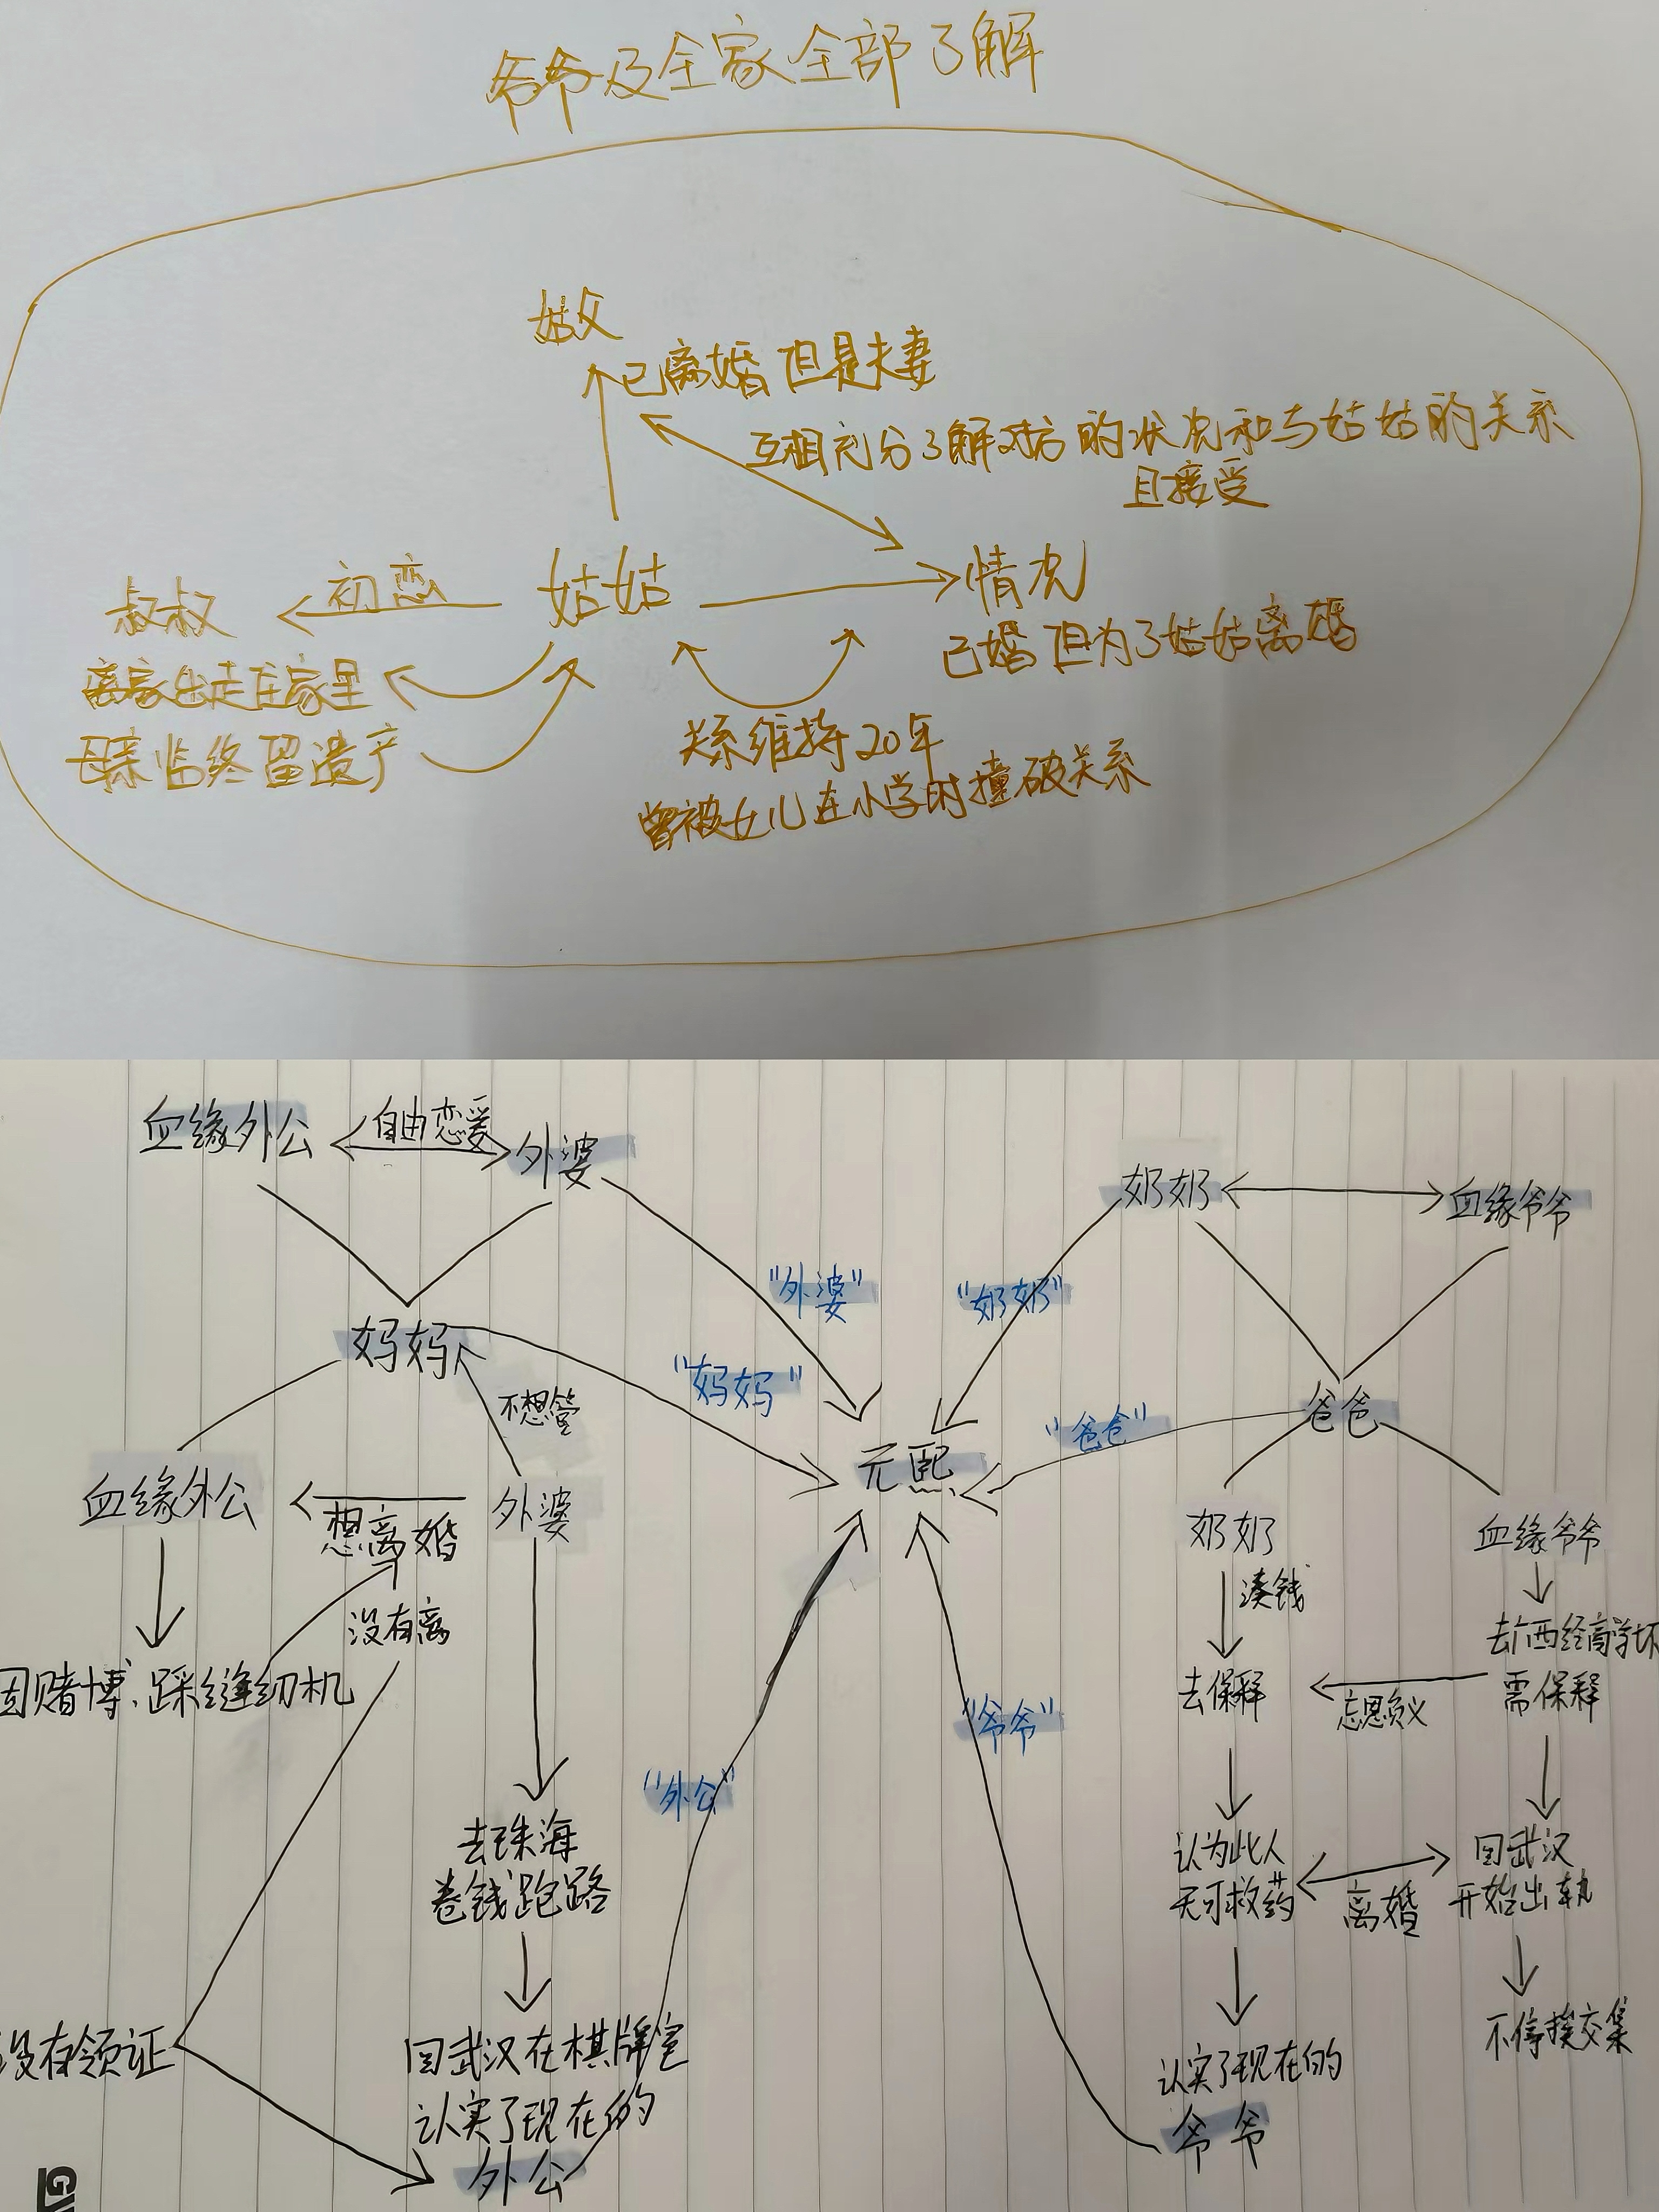 爷爷及全家全部了解
姑父
已离婚但是夫妻
互相充分了解对方的状况和与姑姑的关系
且接受
叔叔
初恋
姑姑
情况
已婚但为了姑姑离婚
离家出走在家里
母亲临终留遗产
关系维持20年
曾被女儿在小学时撞破关系
血缘外公
自由恋爱
外婆
奶奶
血缘爷爷
"外婆"
"奶奶"
妈妈
"妈妈"
不想管
"爸爸"
爸爸
元熙
血缘外公
想离婚
外婆
奶奶
血缘爷爷
没有离
凑钱
去广西经商学坏
因赌博、踩缝纫机
去保释
忘恩负义
需保释
"爷爷"
"外公"
去珠海
卷钱跑路
认为此人
无可救药
离婚
回武汉
开始出轨
没有领证
回武汉在棋牌室
认实了现在的
外公
认实了现在的
爷爷
不停找交集